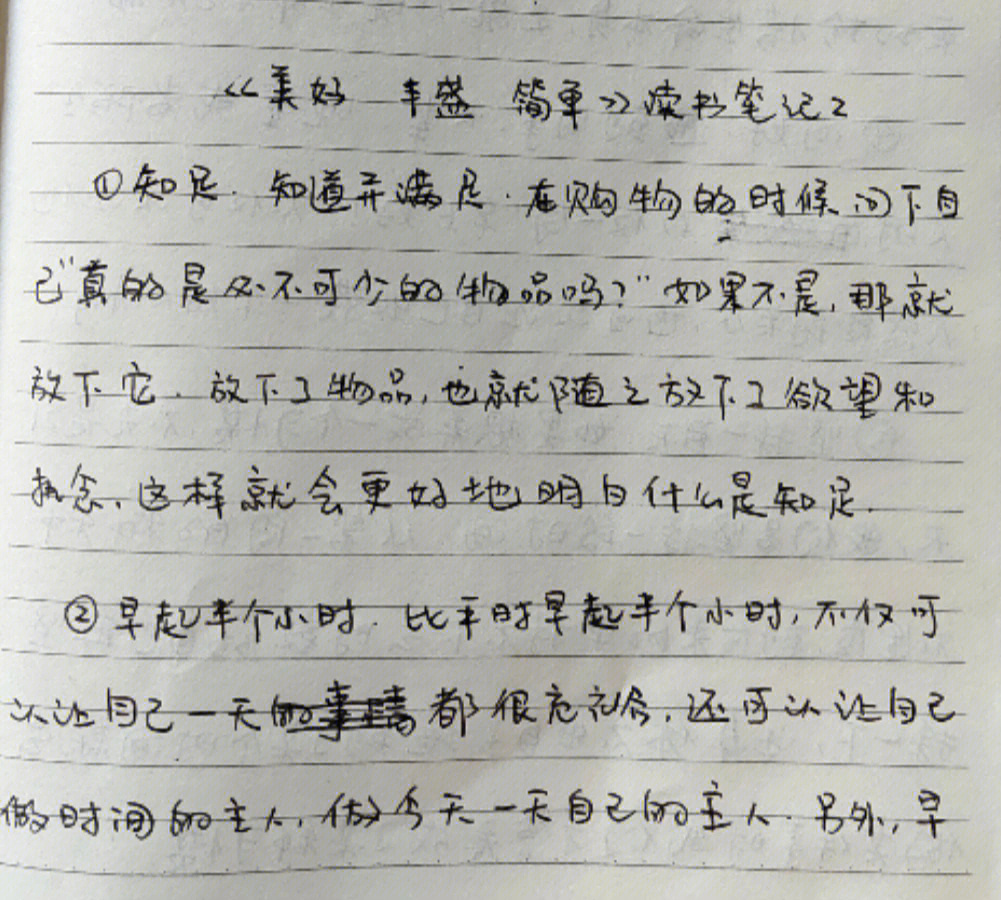 《美好 丰盛 简单》读书笔记2
①知足. 知道并满足.在购物的时候问下自
己"真的是必不可少的物品吗?"如果不是,那就
放下它. 放下了物品,也就随之放下了欲望和
执念,这样就会更好地明白什么是知足.
②早起半个小时. 比平时早起半个小时,不仅可
以让自己一天的事情都很充裕,还可以让自己
做时间的主人,做今天一天自己的主人.另外,早